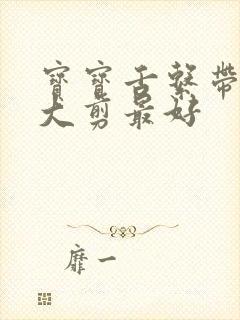 寶寶舌繫帶
大剪最好
靡一